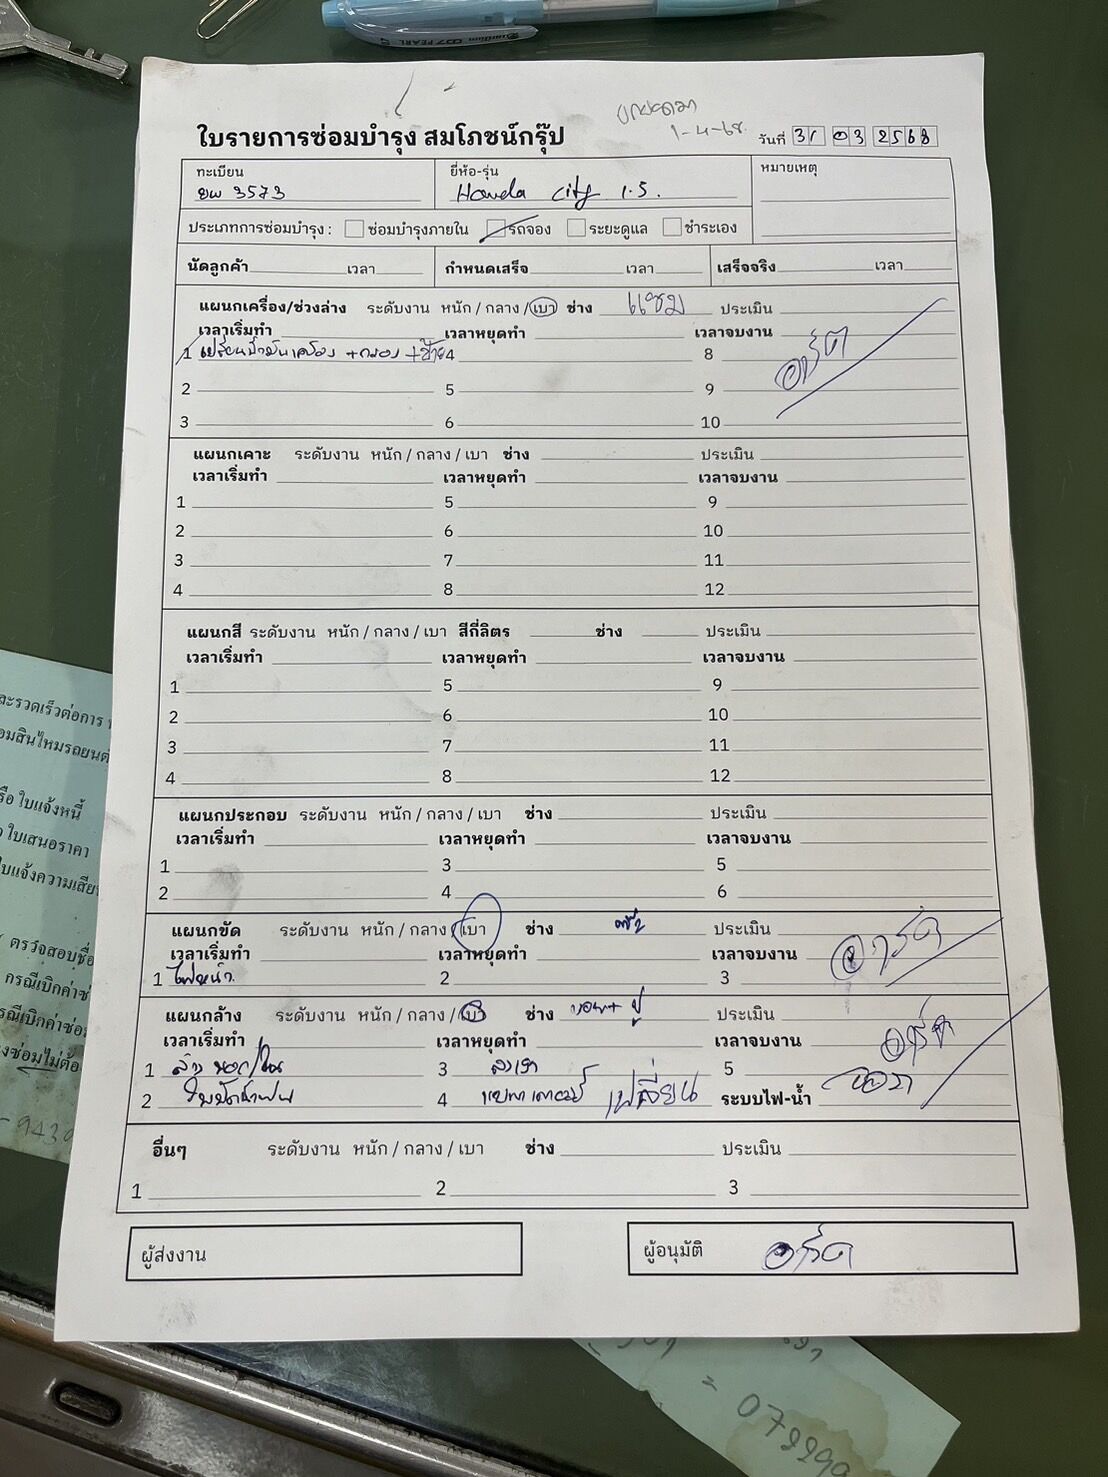 ใบรายการซ่อมบำรุง สมโภชน์กรุ๊ป
1-4-68
วันที่ 31 03 2568
ทะเบียน
ยี่ห้อ-รุ่น
หมายเหตุ
3573
Honda City 1.5.
ประเภทการซ่อมบำรุง : ซ่อมบำรุงภายใน รถจอง ระยะดูแล ชำระเอง
นัดลูกค้า เวลา กำหนดเสร็จ เวลา เสร็จจริง เวลา
แผนกเครื่อง/ช่วงล่าง ระดับงาน หนัก / กลาง / เบา ช่าง แซม ประเมิน
เวลาเริ่มทำ เวลาหยุดทำ เวลาจบงาน
1 เปลี่ยนน้ำมันเครื่อง +กรอง 4 8
อาร์ต
2 5 9
3 6 10
แผนกเคาะ ระดับงาน หนัก / กลาง / เบา ช่าง ประเมิน
เวลาเริ่มทำ เวลาหยุดทำ เวลาจบงาน
1 5 9
2 6 10
3 7 11
4 8 12
แผนกสี ระดับงาน หนัก / กลาง / เบา สีกี่ลิตร ช่าง ประเมิน
เวลาเริ่มทำ เวลาหยุดทำ เวลาจบงาน
1 5 9
2 6 10
3 7 11
4 8 12
แผนกประกอบ ระดับงาน หนัก / กลาง / เบา ช่าง ประเมิน
เวลาเริ่มทำ เวลาหยุดทำ เวลาจบงาน
1 3 5
2 4 6
แผนกขัด ระดับงาน หนัก / กลาง / เบา ช่าง ประเมิน
เวลาเริ่มทำ เวลาหยุดทำ เวลาจบงาน
อาร์ต
1 ไฟหน้า 2 3
แผนกล้าง ระดับงาน หนัก / กลาง / เบา ช่าง ประเมิน
เวลาเริ่มทำ เวลาหยุดทำ เวลาจบงาน
อาร์ต
1 ล้าง นอก/ใน 3 5
2 4 แบตเตอรี่ เปลี่ยน ระบบไฟ-น้ำ
อื่นๆ ระดับงาน หนัก / กลาง / เบา ช่าง ประเมิน
1 2 3
ผู้ส่งงาน
ผู้อนุมัติ อาร์ต
ละรวดเร็วต่อการ
อมสินไหมรถยนต์
รือ ใบแจ้งหนี้
ใบเสนอราคา
ใบแจ้งความเสีย
ตรวจสอบชื่อ
กรณีเบิกค่าซ่
รณีเบิกค่าซ่อ
งซ่อมไม่ต้อ
-9439